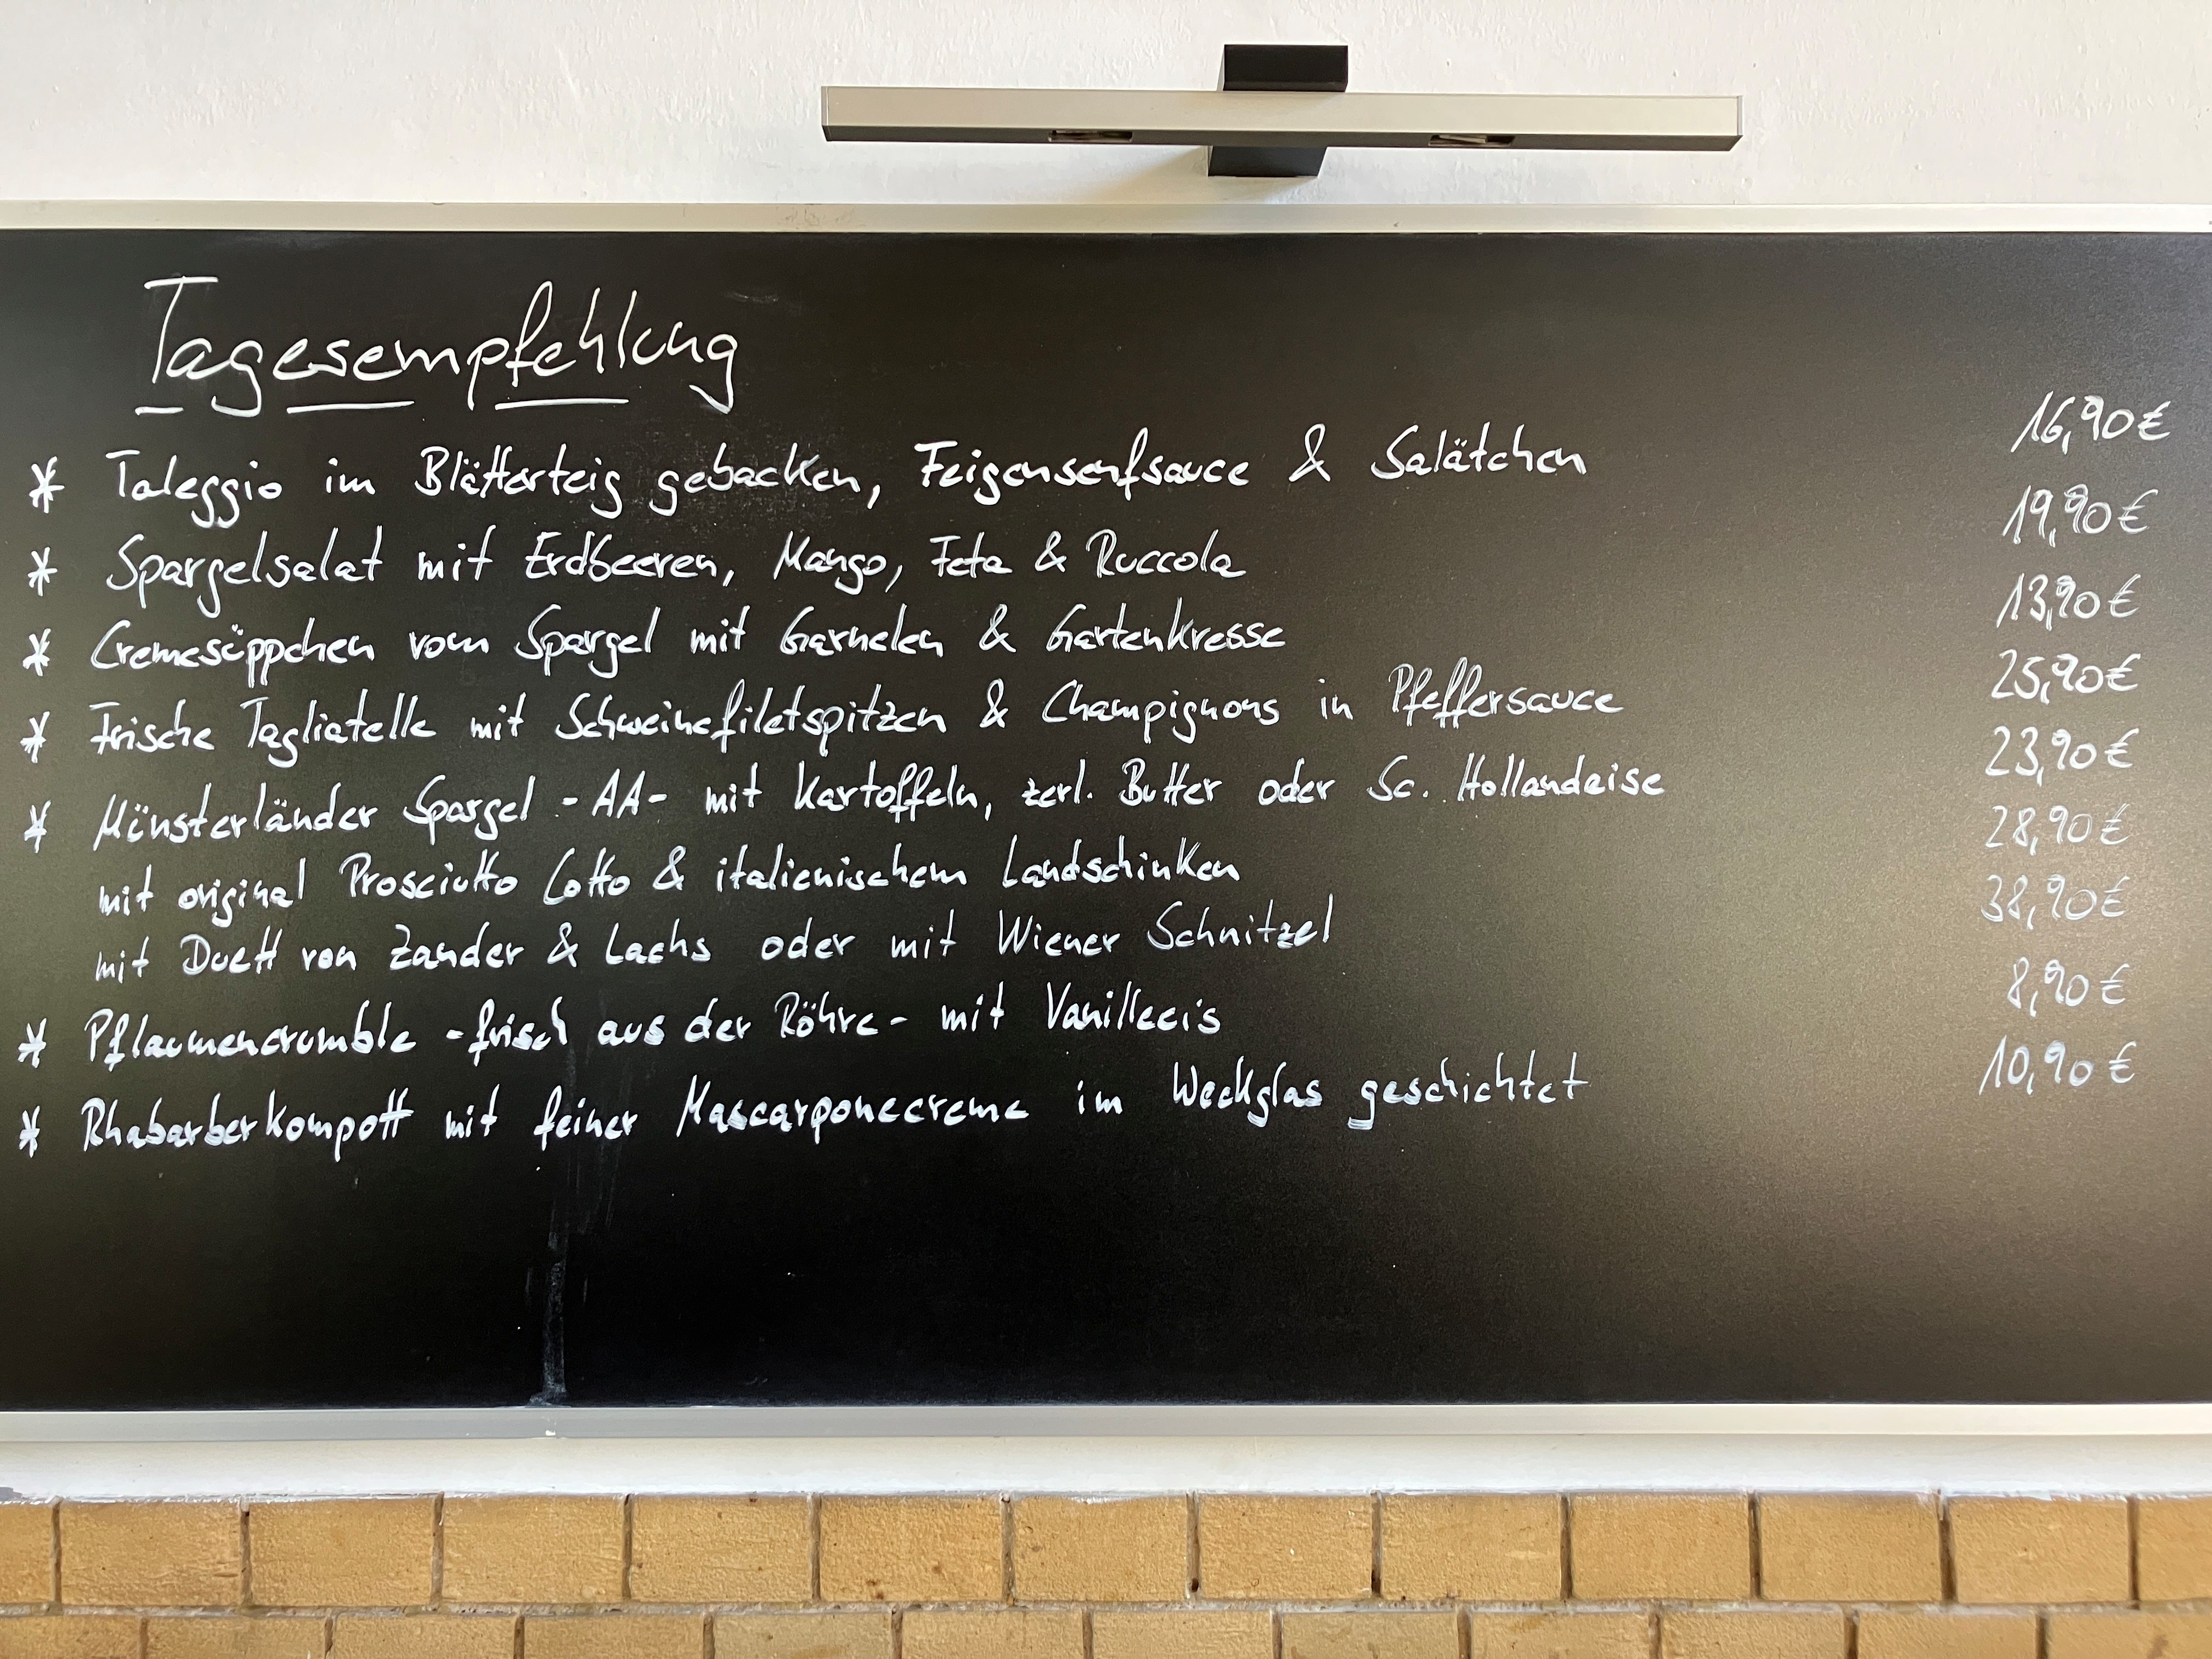 Tagesempfehlung
* Taleggio im Blätterteig gebacken, Feigensenfsauce & Salätchen 16,90€
* Spargelsalat mit Erdbeeren, Mango, Feta & Ruccola 19,90€
* Cremesüppchen vom Spargel mit Garnelen & Gartenkresse 13,90€
* Frische Tagliatelle mit Schweinefiletspitzen & Champignons in Pfeffersauce 25,90€
* Münsterländer Spargel - AA - mit Kartoffeln, zerl. Butter oder Sc. Hollandaise 23,90€
mit original Prosciutto Cotto & italienischem Landschinken 28,90€
mit Duett von Zander & Lachs oder mit Wiener Schnitzel 38,90€
* Pflaumencrumble - frisch aus der Röhre - mit Vanilleeis 8,90€
* Rhabarberkompott mit feiner Mascarponecreme im Weckglas geschichtet 10,90€